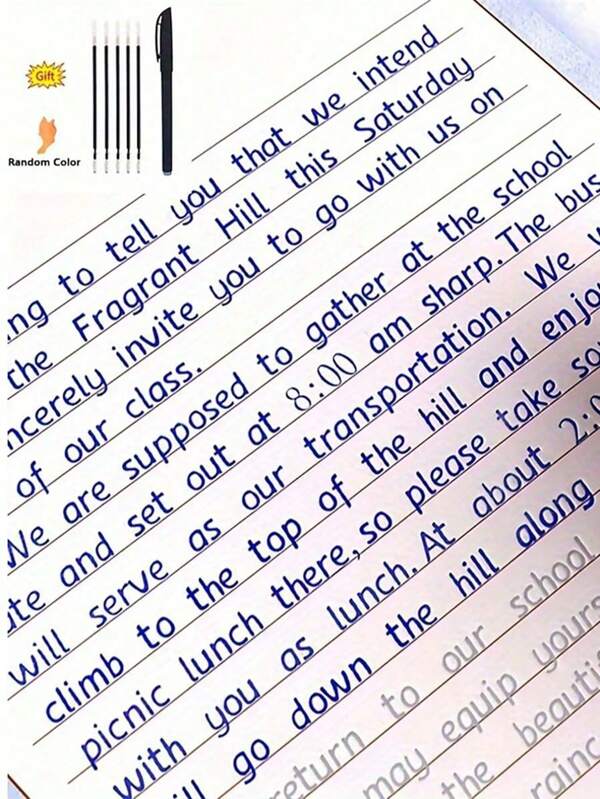 Gift
Random Color
ng to tell you that we intend
the Fragrant Hill this Saturday
ncerely invite you to go with us on
of our class.
We are supposed to gather at the school
te and set out at 8:00 am sharp. The bus
will serve as our transportation. We
climb to the top of the hill and enjo
picnic lunch there, so please take so
with you as lunch. At about 2:0
ll go down the hill along
return to our school
may equip yours
the beauti
rainc